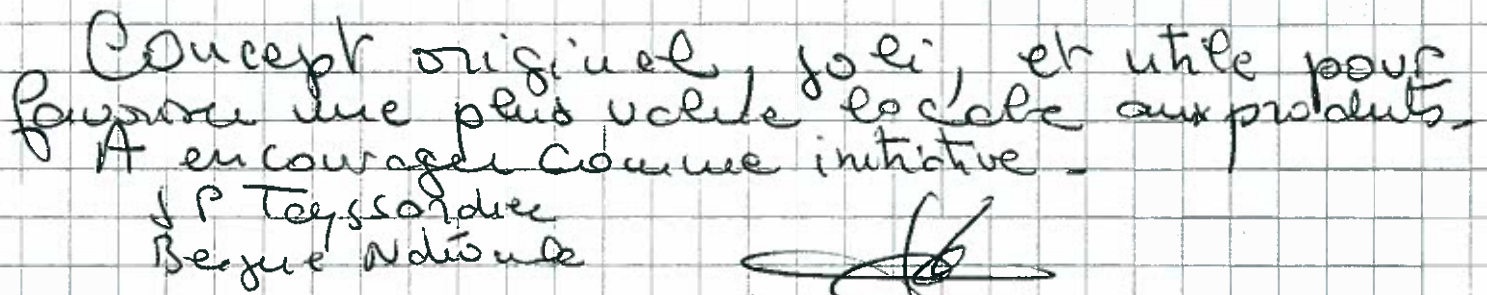 Concept original, joli, et utile pour
favoriser une plus value locale aux produits.
A encourager comme initiative.
JP Teyssandier